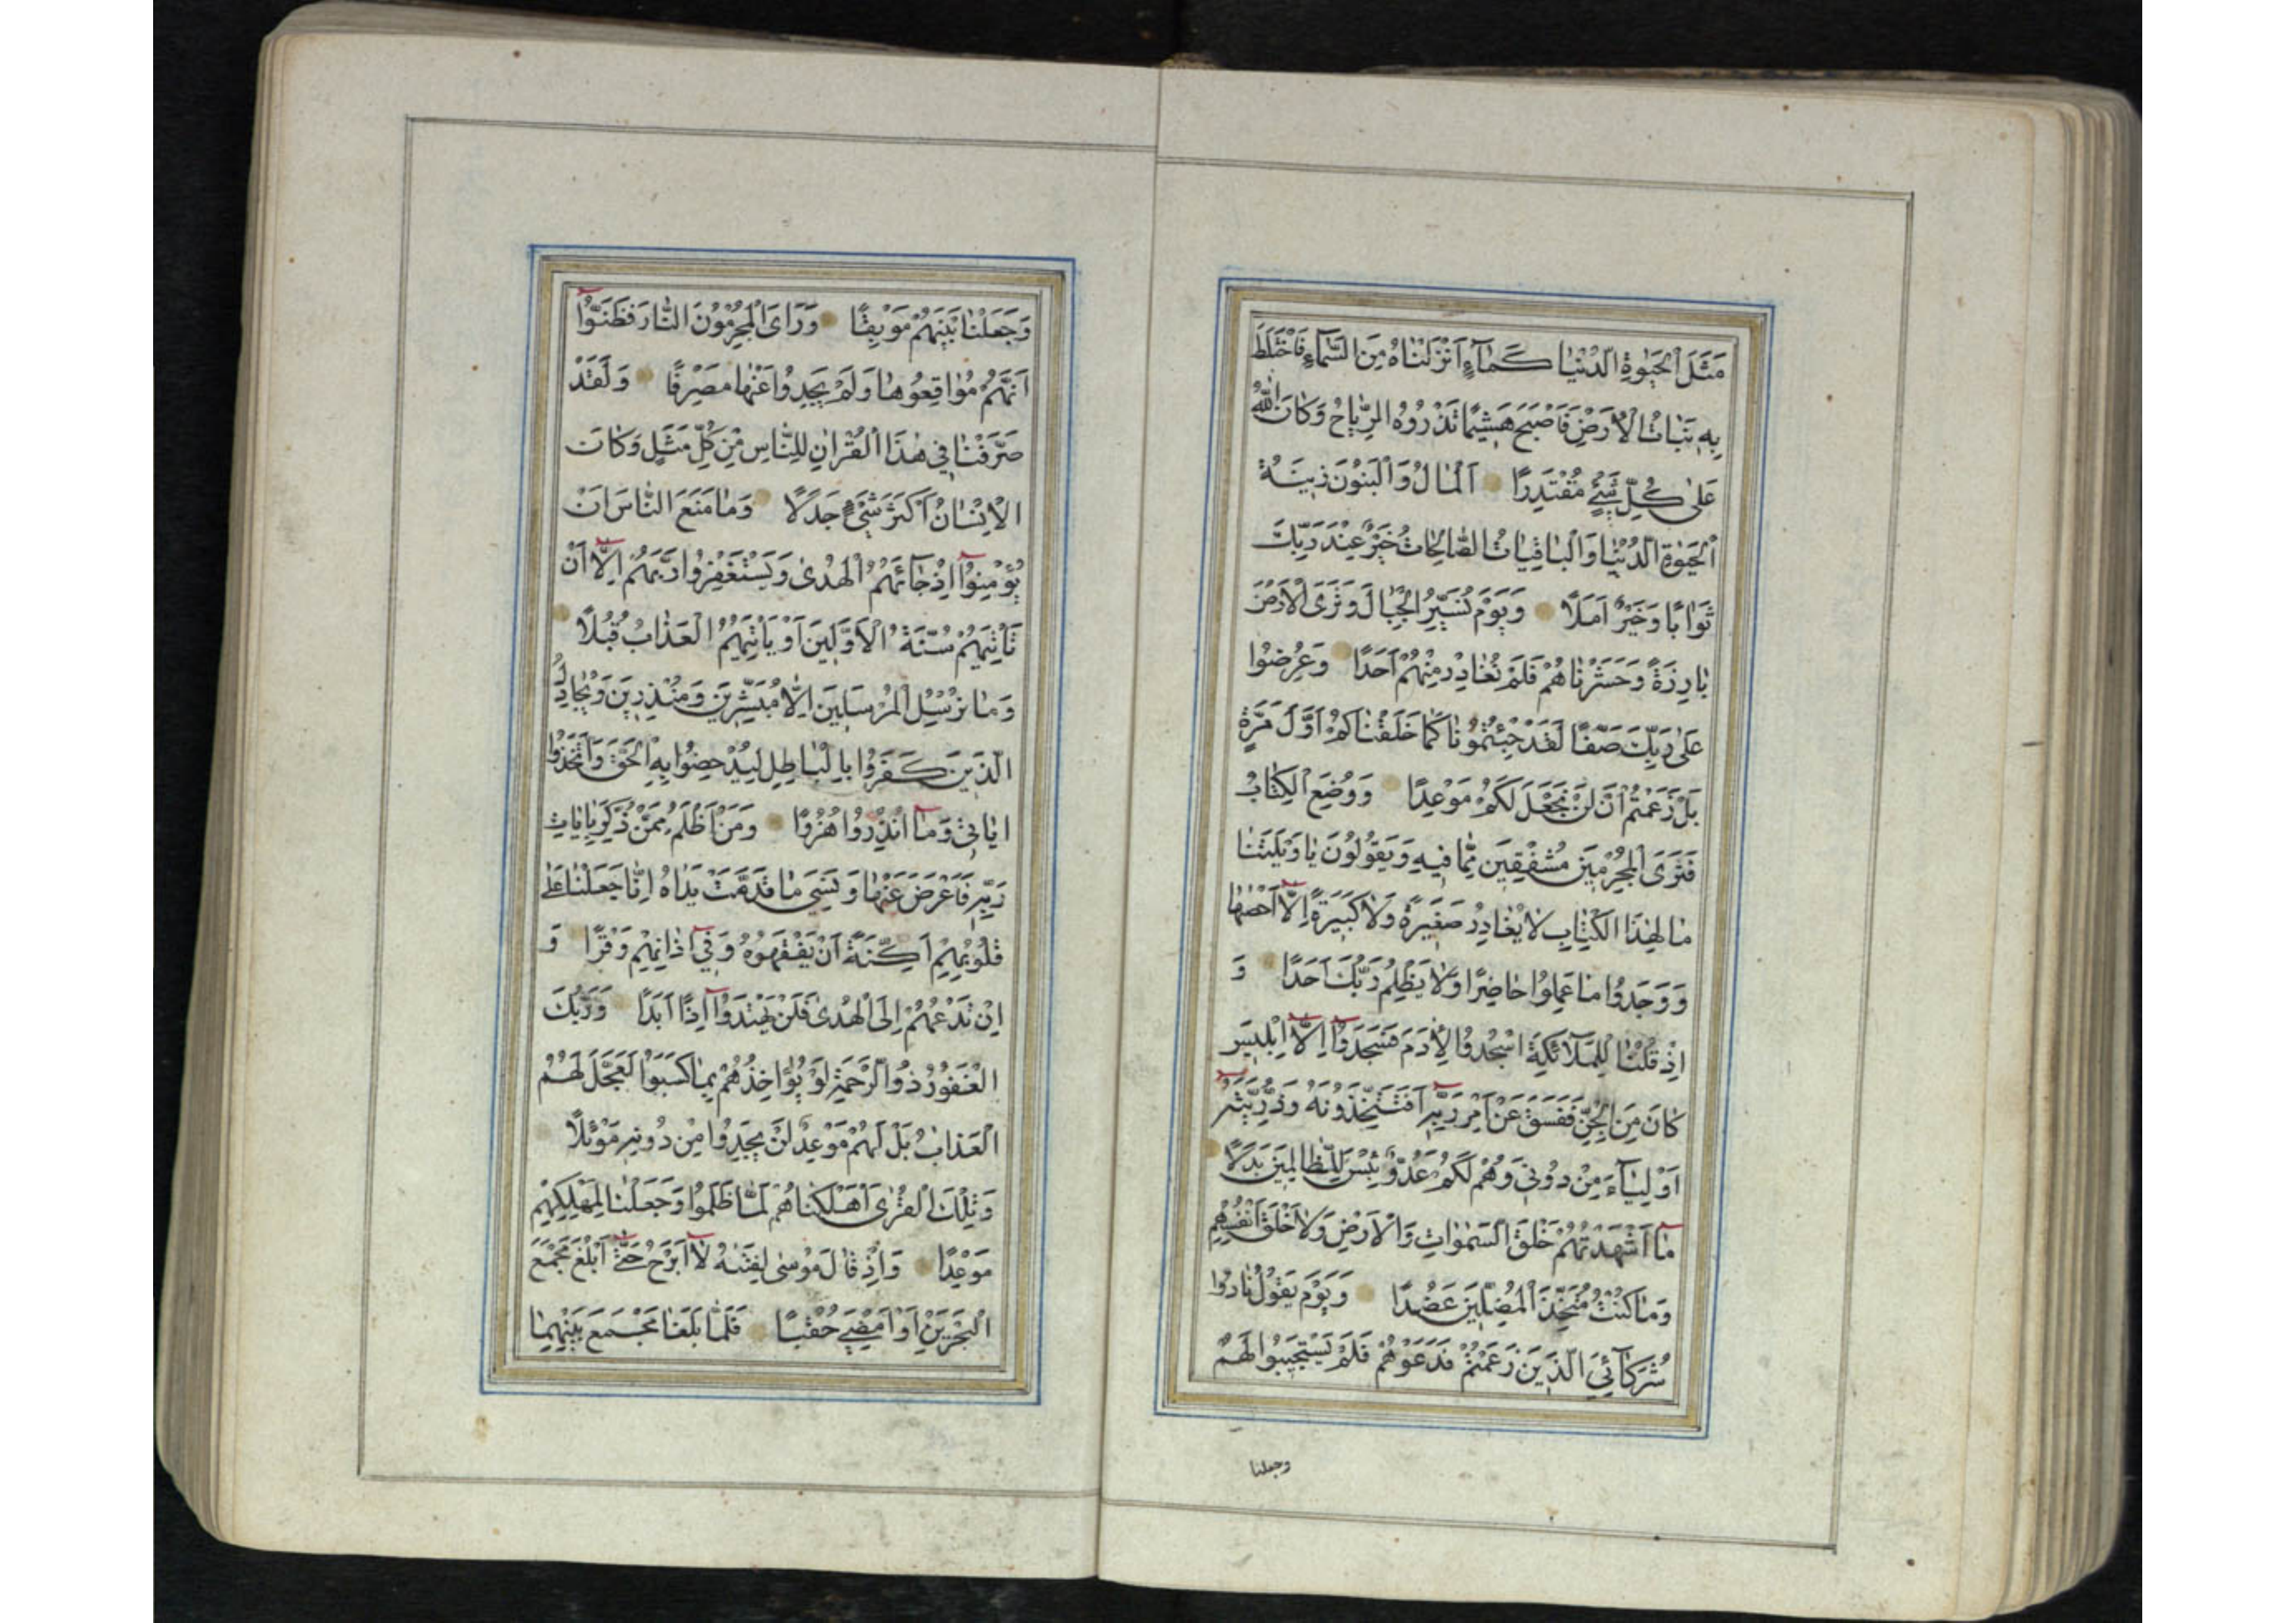 مَثَلَ الْحَيٰوةِ الدُّنْيَا كَمَآءٍ اَنْزَلْنَاهُ مِنَ السَّمَآءِ فَاخْتَلَطَ
بِهِ نَبَاتُ الْاَرْضِ فَاَصْبَحَ هَشِيمًا تَذْرُوهُ الرِّيَاحُ وَكَانَ اللّٰهُ
عَلٰى كُلِّ شَيْءٍ مُقْتَدِرًا اَلْمَالُ وَالْبَنُونَ زِينَةُ
الْحَيٰوةِ الدُّنْيَا وَالْبَاقِيَاتُ الصَّالِحَاتُ خَيْرٌ عِنْدَ رَبِّكَ
ثَوَابًا وَخَيْرٌ اَمَلًا وَيَوْمَ نُسَيِّرُ الْجِبَالَ وَتَرَى الْاَرْضَ
بَارِزَةً وَحَشَرْنَاهُمْ فَلَمْ نُغَادِرْ مِنْهُمْ اَحَدًا وَعُرِضُوا
عَلٰى رَبِّكَ صَفًّا لَقَدْ جِئْتُمُونَا كَمَا خَلَقْنَاكُمْ اَوَّلَ مَرَّةٍ
بَلْ زَعَمْتُمْ اَنْ لَنْ نَجْعَلَ لَكُمْ مَوْعِدًا وَوُضِعَ الْكِتَابُ
فَتَرَى الْمُجْرِمِينَ مُشْفِقِينَ مِمَّا فِيهِ وَيَقُولُونَ يَا وَيْلَتَنَا
مَا لِهٰذَا الْكِتَابِ لَا يُغَادِرُ صَغِيرَةً وَلَا كَبِيرَةً اِلَّا اَحْصٰهَا
وَوَجَدُوا مَا عَمِلُوا حَاضِرًا وَلَا يَظْلِمُ رَبُّكَ اَحَدًا وَ
اِذْ قُلْنَا لِلْمَلٰٓائِكَةِ اسْجُدُوا لِاٰدَمَ فَسَجَدُوا اِلَّا اِبْلِيسَ
كَانَ مِنَ الْجِنِّ فَفَسَقَ عَنْ اَمْرِ رَبِّهِ اَفَتَتَّخِذُونَهُ وَذُرِّيَّتَهُ
اَوْلِيَآءَ مِنْ دُونِي وَهُمْ لَكُمْ عَدُوٌّ بِئْسَ لِلظَّالِمِينَ بَدَلًا
مَا اَشْهَدْتُهُمْ خَلْقَ السَّمٰوَاتِ وَالْاَرْضِ وَلَا خَلْقَ اَنْفُسِهِمْ
وَمَا كُنْتُ مُتَّخِذَ الْمُضِلِّينَ عَضُدًا وَيَوْمَ يَقُولُ نَادُوا
شُرَكَآئِيَ الَّذِينَ زَعَمْتُمْ فَدَعَوْهُمْ فَلَمْ يَسْتَجِيبُوا لَهُمْ
وجعلنا
وَجَعَلْنَا بَيْنَهُمْ مَوْبِقًا وَرَاَى الْمُجْرِمُونَ النَّارَ فَظَنُّوا
اَنَّهُمْ مُوَاقِعُوهَا وَلَمْ يَجِدُوا عَنْهَا مَصْرِفًا وَلَقَدْ
صَرَّفْنَا فِي هٰذَا الْقُرْاٰنِ لِلنَّاسِ مِنْ كُلِّ مَثَلٍ وَكَانَ
الْاِنْسَانُ اَكْثَرَ شَيْءٍ جَدَلًا وَمَا مَنَعَ النَّاسَ اَنْ
يُؤْمِنُوا اِذْ جَآئَهُمُ الْهُدٰى وَيَسْتَغْفِرُوا رَبَّهُمْ اِلَّا اَنْ
تَاْتِيَهُمْ سُنَّةُ الْاَوَّلِينَ اَوْ يَاْتِيَهُمُ الْعَذَابُ قُبُلًا
وَمَا نُرْسِلُ الْمُرْسَلِينَ اِلَّا مُبَشِّرِينَ وَمُنْذِرِينَ وَيُجَادِلُ
الَّذِينَ كَفَرُوا بِالْبَاطِلِ لِيُدْحِضُوا بِهِ الْحَقَّ وَاتَّخَذُوا
اٰيَاتِي وَمَا اُنْذِرُوا هُزُوًا وَمَنْ اَظْلَمُ مِمَّنْ ذُكِّرَ بِاٰيَاتِ
رَبِّهِ فَاَعْرَضَ عَنْهَا وَنَسِيَ مَا قَدَّمَتْ يَدَاهُ اِنَّا جَعَلْنَا عَلٰى
قُلُوبِهِمْ اَكِنَّةً اَنْ يَفْقَهُوهُ وَفِي اٰذَانِهِمْ وَقْرًا وَ
اِنْ تَدْعُهُمْ اِلَى الْهُدٰى فَلَنْ يَهْتَدُوا اِذًا اَبَدًا وَرَبُّكَ
الْغَفُورُ ذُو الرَّحْمَةِ لَوْ يُؤَاخِذُهُمْ بِمَا كَسَبُوا لَعَجَّلَ لَهُمُ
الْعَذَابَ بَلْ لَهُمْ مَوْعِدٌ لَنْ يَجِدُوا مِنْ دُونِهِ مَوْئِلًا
وَتِلْكَ الْقُرٰى اَهْلَكْنَاهُمْ لَمَّا ظَلَمُوا وَجَعَلْنَا لِمَهْلِكِهِمْ
مَوْعِدًا وَاِذْ قَالَ مُوسٰى لِفَتٰىهُ لَا اَبْرَحُ حَتّٰى اَبْلُغَ مَجْمَعَ
الْبَحْرَيْنِ اَوْ اَمْضِيَ حُقُبًا فَلَمَّا بَلَغَا مَجْمَعَ بَيْنِهِمَا